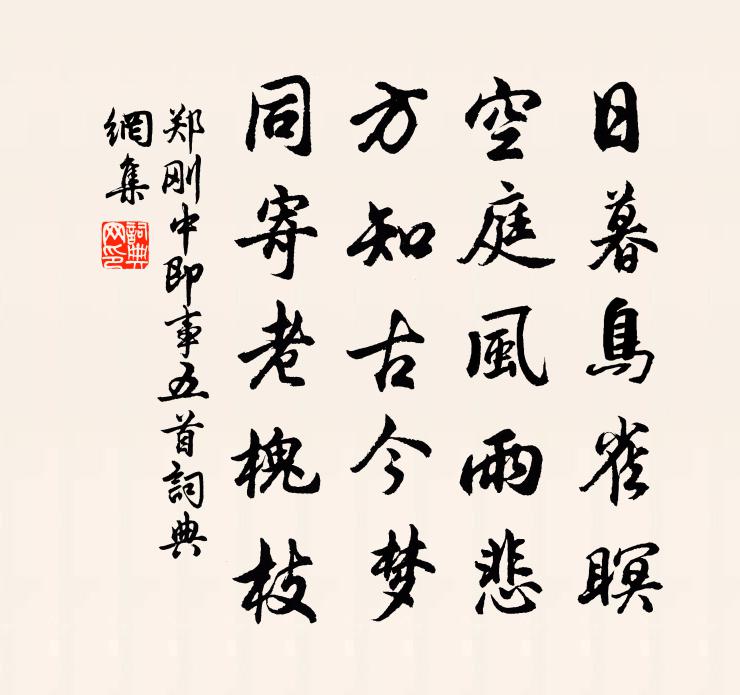 日暮鳥雀瞑
空庭風雨悲
方知古今梦
同寄老槐枝
郑刚中即事五首詞典
網集
詞典
网印